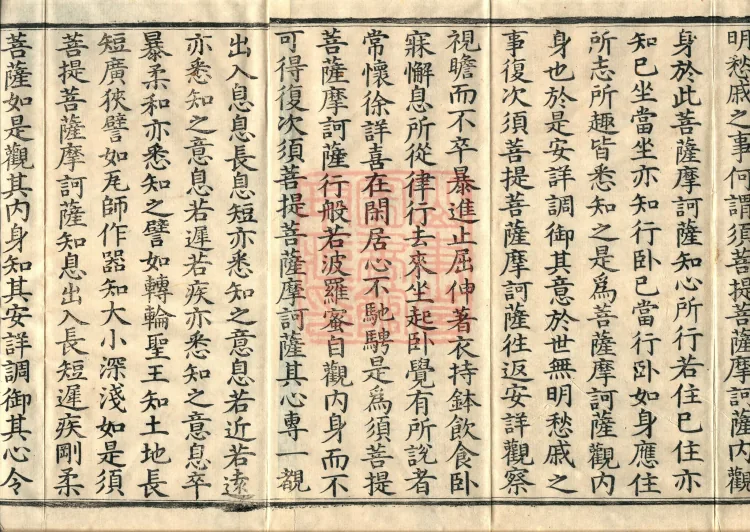 明愁戚之事何謂須菩提菩薩摩訶薩內觀
身於此菩薩摩訶薩知心所行若住已住亦
知已坐當坐亦知行卧已當行卧如身應住
所志所趣皆悉知之是為菩薩摩訶薩觀內
身也於是安詳調御其意於世無明愁戚之
事復次須菩提菩薩摩訶薩往返安詳觀察
視瞻而不卒暴進止屈伸著衣持鉢飲食卧
寐懈息所從律行去來坐起卧覺有所說者
常懷徐詳喜在閑居心不馳騁是為須菩提
菩薩摩訶薩行般若波羅蜜自觀內身而不
可得復次須菩提菩薩摩訶薩其心專一覩
出入息息長息短亦悉知之意息若近若遠
亦悉知之意息若遲若疾亦悉知之意息卒
暴柔和亦悉知之譬如轉輪聖王知土地長
短廣狹譬如瓦師作器知大小深淺如是須
菩提菩薩摩訶薩知息出入長短遲疾剛柔
菩薩如是觀其內身知其安詳調御其心令